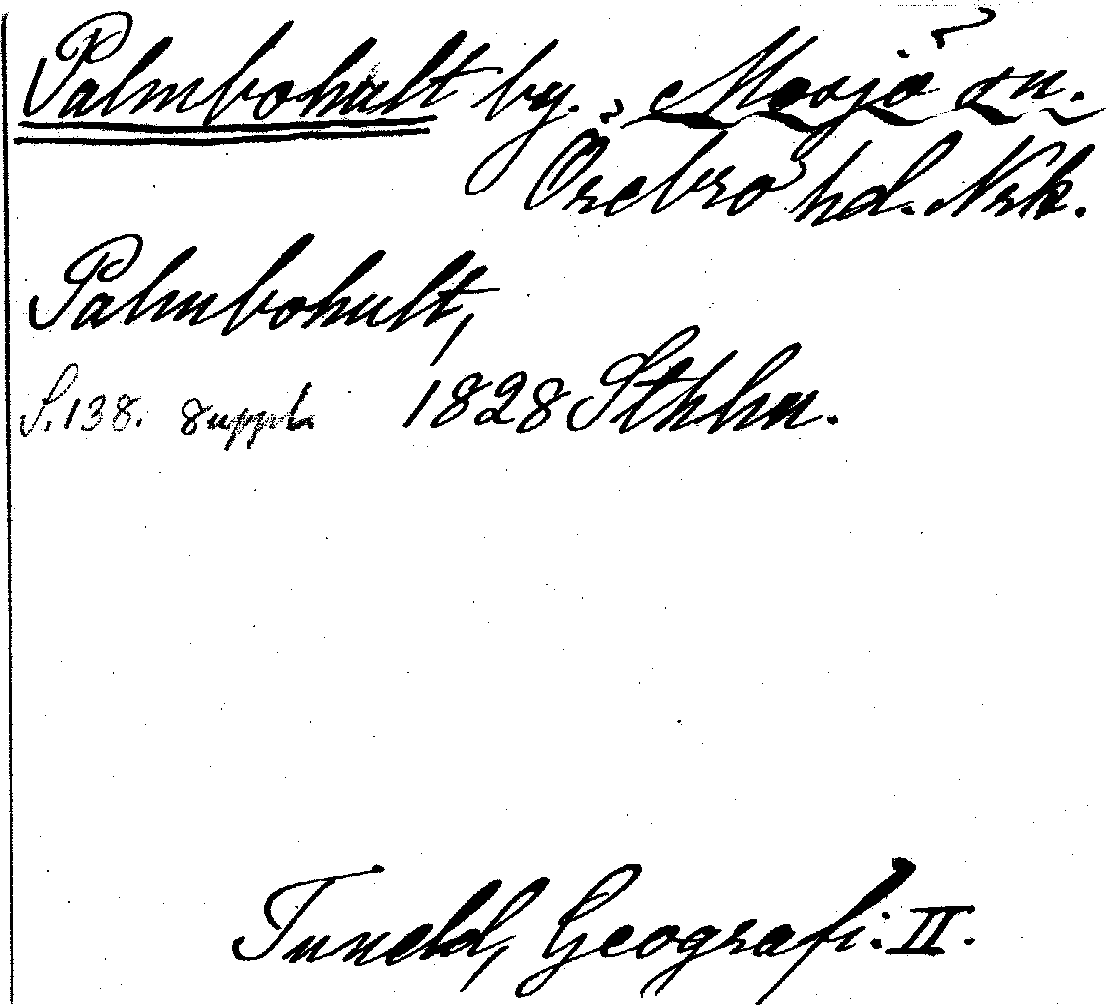 Palmbohult by. Mosjö sn.
Örebro hd. Nrk.
Palmbohult,
S. 138. suppl. 1828 Sthlm.
Tuneld, Geografi. II.